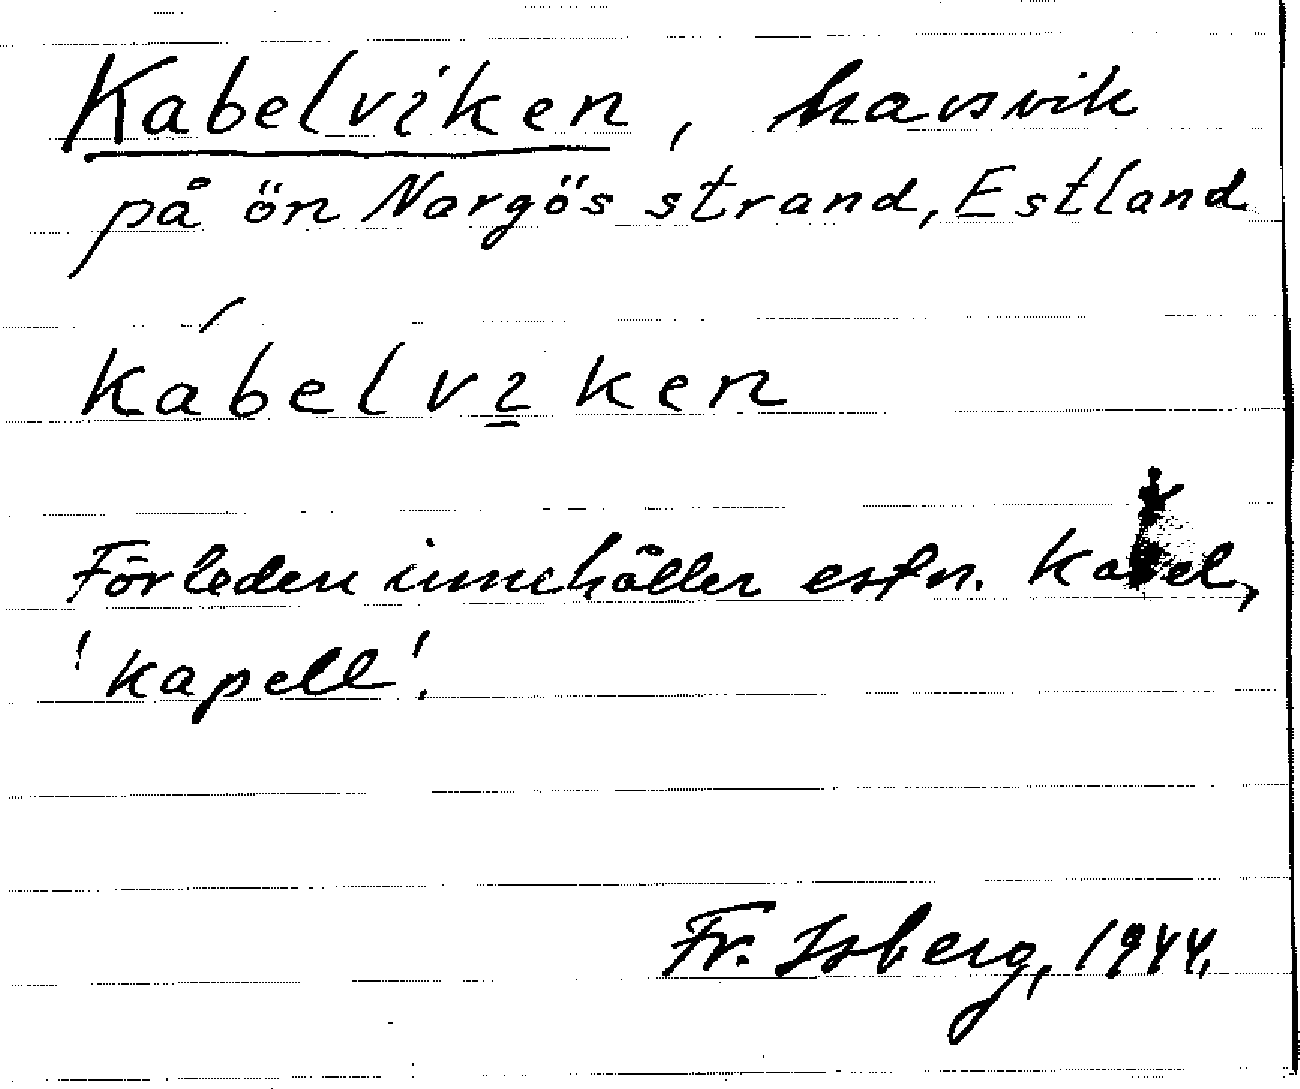 Kabelviken, havsvik
på ön Nargös strand, Estland
ḱabelvi̲ken
Förleden innehåller estn. Kabel,
'kapell'.
Fr. Isberg, 1944.